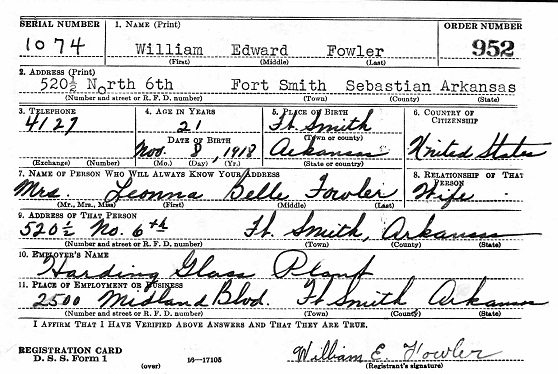 SERIAL NUMBER 1. NAME (Print) ORDER NUMBER
1074 William Edward Fowler 952
(First) (Middle) (Last)
2. ADDRESS (Print)
520½ North 6th Fort Smith Sebastian Arkansas
(Number and street or R. F. D. number) (Town) (County) (State)
3. TELEPHONE 4. AGE IN YEARS 5. PLACE OF BIRTH 6. COUNTRY OF CITIZENSHIP
4127 21 Ft. Smith
DATE OF BIRTH (Town or county)
Nov. 8, 1918 Arkansas United States
(Exchange) (Number) (Mo.) (Day) (Yr.) (State or country)
7. NAME OF PERSON WHO WILL ALWAYS KNOW YOUR ADDRESS 8. RELATIONSHIP OF THAT PERSON
Mrs. Leonna Belle Fowler Wife
(Mr., Mrs., Miss) (First) (Middle) (Last)
9. ADDRESS OF THAT PERSON
520½ No. 6th Ft. Smith, Arkansas
(Number and street or R. F. D. number) (Town) (County) (State)
10. EMPLOYER'S NAME
Harding Glass Plant
11. PLACE OF EMPLOYMENT OR BUSINESS
2500 Midland Blvd. Ft Smith Arkansas
(Number and street or R. F. D. number) (Town) (County) (State)
I AFFIRM THAT I HAVE VERIFIED ABOVE ANSWERS AND THAT THEY ARE TRUE.
REGISTRATION CARD William E. Fowler
D. S. S. Form 1 (over) 16—17105 (Registrant's signature)